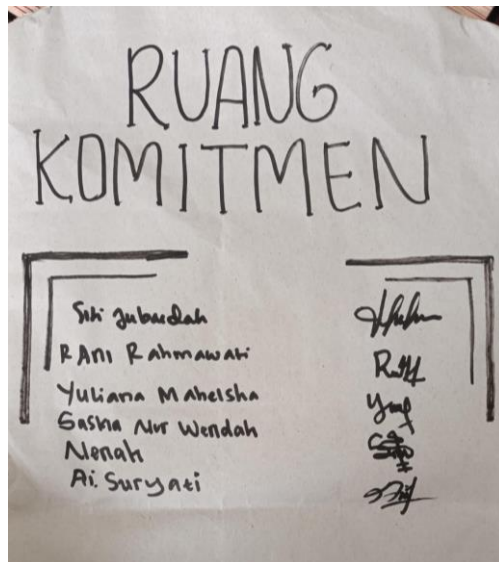 RUANG
KOMITMEN
Siti Jubaedah
RAni Rahmawati
Yuliana Mahelsha
Saskia Nur Wendah
Nenah
Ai. Suryati